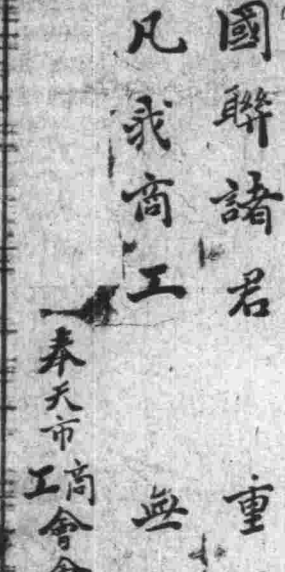 國聯諸君 重
凡我商工 無
奉天市商工會